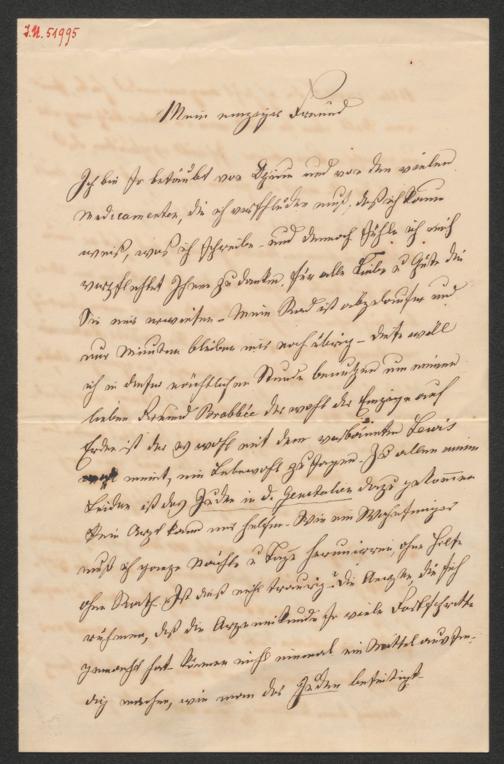 I.N. 51995
Mein einziger Freund
Ich bin so betäubt von Opium und von den vielen
Medicamenten, die ich verschlucken muß, daß ich kaum
weiß, was ich schreibe – und dennoch fühle ich mich
verpflichtet Ihnen zu danken, für alle Liebe u Güte die
Sie mir erwiesen – Mein Rad ist abgelaufen und
nur Minuten bleiben mir noch übrig – diese will
ich in dieser nächtlichen Stunde benutzen um meinem
lieben Freund Brabbée der wohl der Einzige auf
Erden ist der es wohl mit dem verbannten Lewis
meint, ein Lebewohl zu sagen. Zu allen meinen
Leiden ist das Jucken in d. Genitalien dazu gekommen
Kein Arzt kann mir helfen – Wie ein Wahnsinniger
muß ich ganze Nächte u Tage herumirren, ohne Hilfe
ohne Rath. Ist das nicht traurig? Die Aerzte, die sich
rühmen, daß die Arzeneikunde so viele Fortschritte
gemacht hat können nicht einmal ein Mittel ausfin-
dig machen, wie man das Jucken beseitigt